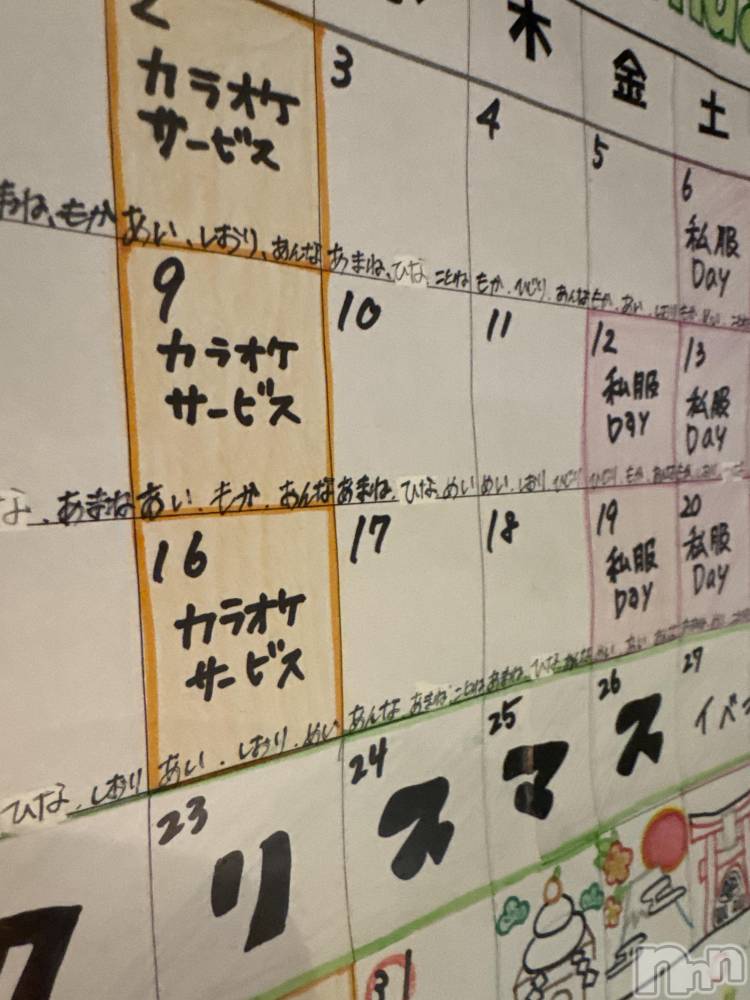 木
金
土
2
カラオケ
サービス
3
4
5
6
私服
Day
まね、もか
あい、しおり、あんな
あまね、ひな、ことね
もか、ひじり、あんな
9
カラオケ
サービス
10
11
12
私服
Day
13
私服
Day
な、あまね
あい、もか、あんな
あまね、ひな、めい
めい、しおり、ひじり
16
カラオケ
サービス
17
18
19
私服
Day
20
私服
Day
ひな、しおり
あい、しおり、めい
あんな、あまね、ことね
あまね、ひな、あんな
23
24
25
26
27
クリスマス
イベ
31
nnn